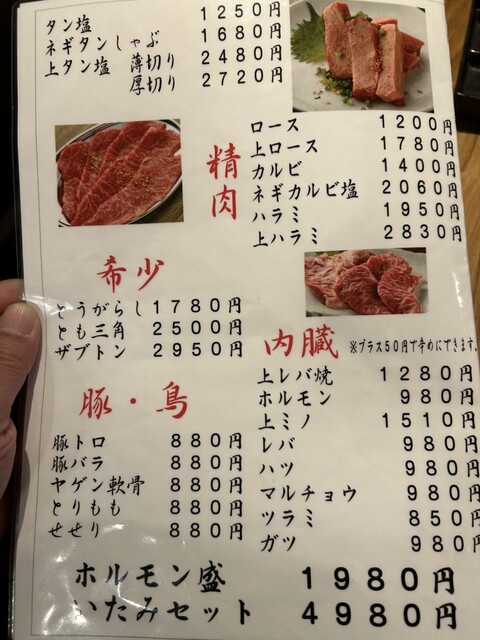 タン塩 1250円
ネギタンしゃぶ 1680円
上タン塩 薄切り 2480円
厚切り 2720円
精肉
ロース 1200円
上ロース 1780円
カルビ 1400円
ネギカルビ塩 2060円
ハラミ 1950円
上ハラミ 2830円
希少
とうがらし 1780円
とも三角 2500円
ザブトン 2950円
内臓 ※プラス50円で辛めにできます。
上レバ焼 1280円
ホルモン 980円
上ミノ 1510円
レバ 980円
ハツ 980円
マルチョウ 980円
ツラミ 850円
ガツ 980円
豚・鳥
豚トロ 880円
豚バラ 880円
ヤゲン軟骨 880円
とりもも 880円
せせり 880円
ホルモン盛 1980円
いたみセット 4980円